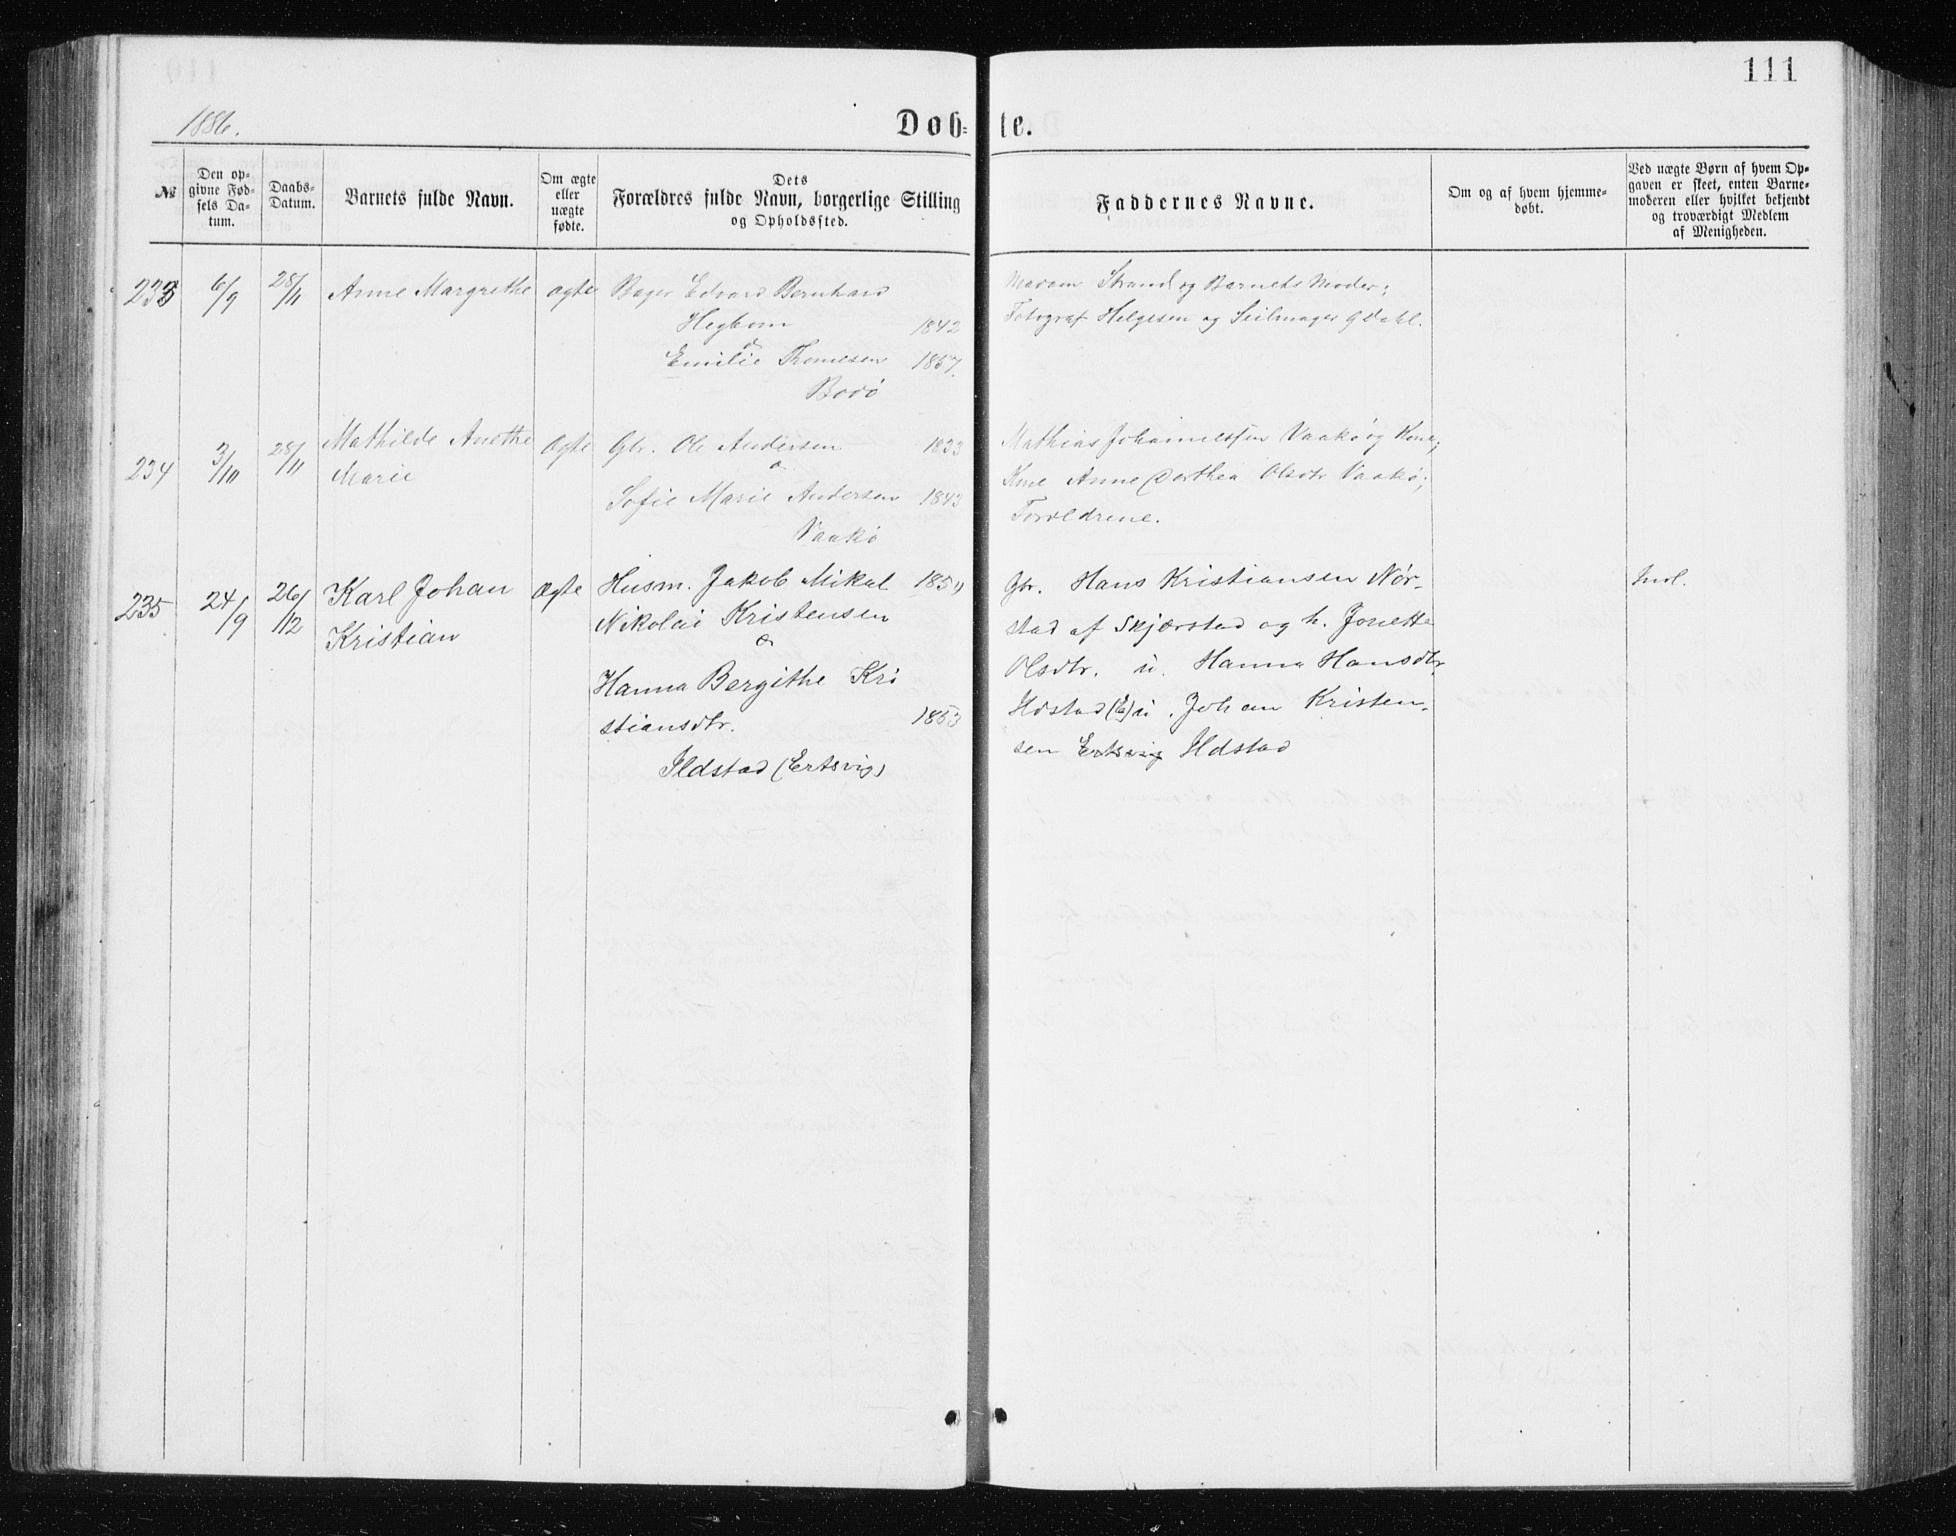 111
1886.
Døb-te.
№
Den op-
givne Fød-
sels Da-
tum.
Daabs-
Datum.
Barnets fulde Navn.
Om ægte
eller
uægte
fødte.
Dets
Forældres fulde Navn, borgerlige Stilling
og Opholdssted.
Faddernes Navne.
Om og af hvem hjemme-
døbt.
Ved uægte Børn af hvem Op-
gaven er skeet, enten Barne-
moderen eller hvilket bekjendt
og troværdigt Medlem
af Menigheden.
233 6/9 28/11 Anne Margrethe ægte Bager Edvard Bernhard
Hegbom 1842
&
Emilie Tromesen 1857.
Bodø
Madam Strand og Barnets Moder;
Fotograf Helgesen og Seilmager Gdahl.
234 3/10 28/11 Mathilde Anethe
Marie
Ægte Gbr. Ole Andersen 1833
&
Sofie Marie Andersen 1843
Vaakø
Mathias Johannessen Vaakø og Kone;
Kone Anne Dorthea Olsdtr Vaakø;
Forældrene.
235 24/9 26/12 Karl Johan
Kristian
Ægte Husm. Jakob Mikal
Nikolai Kristensen
&
Hanna Bergithe Kri
stiansdtr. 1853
Ildstad (Ertsvig)
Gbr. Hans Kristiansen Nør-
stad af Skjærstad og h. Jonette
Olsdtr. u. Hanna Hansdtr.
Ildstad (E) u. Johan Kristen-
sen Ertsvig Ildstad